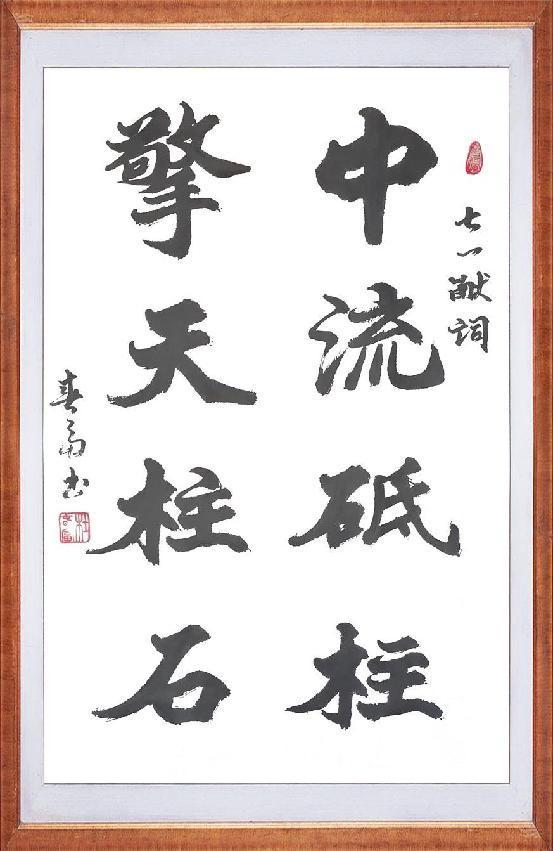 七一献词
中流砥柱
擎天柱石
春 书